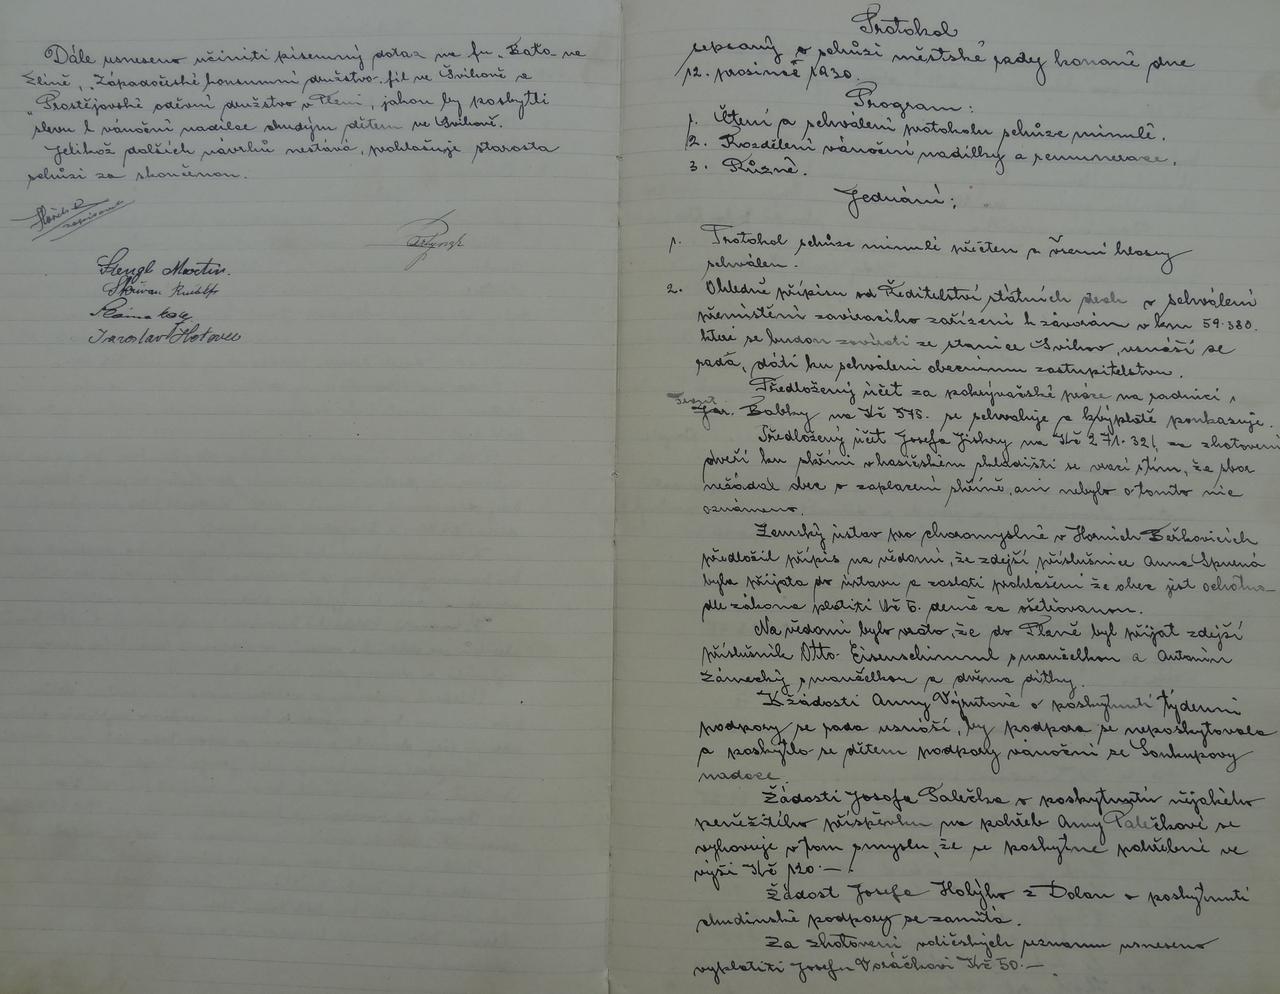 Dále usneseno učiniti písemný dotaz na fu „Baťa“ ve
Zlíně, „Západočeské konsumní družstvo“ fil. ve Švihově a
„Prostějovské oděvní družstvo v Plzni, jakou by poskytli
slevu k vánoční nadílce chudým dětem ve Švihově.
Jelikož dalších návrhů nestává, prohlašuje starosta
schůzi za skončenou.
zapisovatel
Stengl Martin.
Jaroslav Hotovec
Protokol
sepsaný o schůzi městské rady konané dne
12. prosince 1930.
Program:
1. Čtení a schválení protokolu schůze minulé.
2. Rozdělení vánoční nadílky a remunerace.
3. Různé.
Jednání:
1. Protokol schůze minulé přečten a všemi hlasy
schválen.
2. Ohledně přípisu od Ředitelství státních drah o schválení
přemístění zavíracího zařízení k závorám v km 59.380.
které se budou zavírati ze stanice Švihov, usnáší se
rada, dáti ku schválení obecnímu zastupitelstvu.
Předložený účet za pokrývačské práce na radnici
Babky na Kč 575.- se schvaluje a k výplatě poukazuje.
Předložený účet Josefa Jiskry na Kč 271.32, za zhotovení
dveří ku skříni v hasičském skladišti se vrací s tím, že sbor
nežádal obec o zaplacení skříně, ani nebylo o tomto nic
oznámeno.
Zemský ústav pro choromyslné v Horních Beřkovicích
předložil přípis na vědomí, že zdejší příslušnice Anna
byla přijata do ústavu a zaslati prohlášení že obec jest ochotna
dle zákona platiti Kč 5.- denně za ošetřovanou.
Na vědomí bylo vzato, že do Plzně byl přijat zdejší
příslušník Otto Eisenschimml s manželkou a Antonín
Zámecký s manželkou a dvěma dítky.
K žádosti Anny Výrutové o poskytnutí týdenní
podpory se rada usnáší, by podpora se neposkytovala
a poskytlo se dětem podpory vánoční ze Soukupovy
nadace.
Žádosti Josefa Palečka o poskytnutí nějakého
peněžitého příspěvku na pohřeb Anny Palečkové se
vyhovuje v tom smyslu, že se poskytne pohřební ve
výši Kč 120.—.
Žádost Josefa Hobýho z Dolan o poskytnutí
chudinské podpory se zamítá.
Za zhotovení voličských seznamů usneseno
vyplatiti Josefu Voráčkovi Kč 50.—.